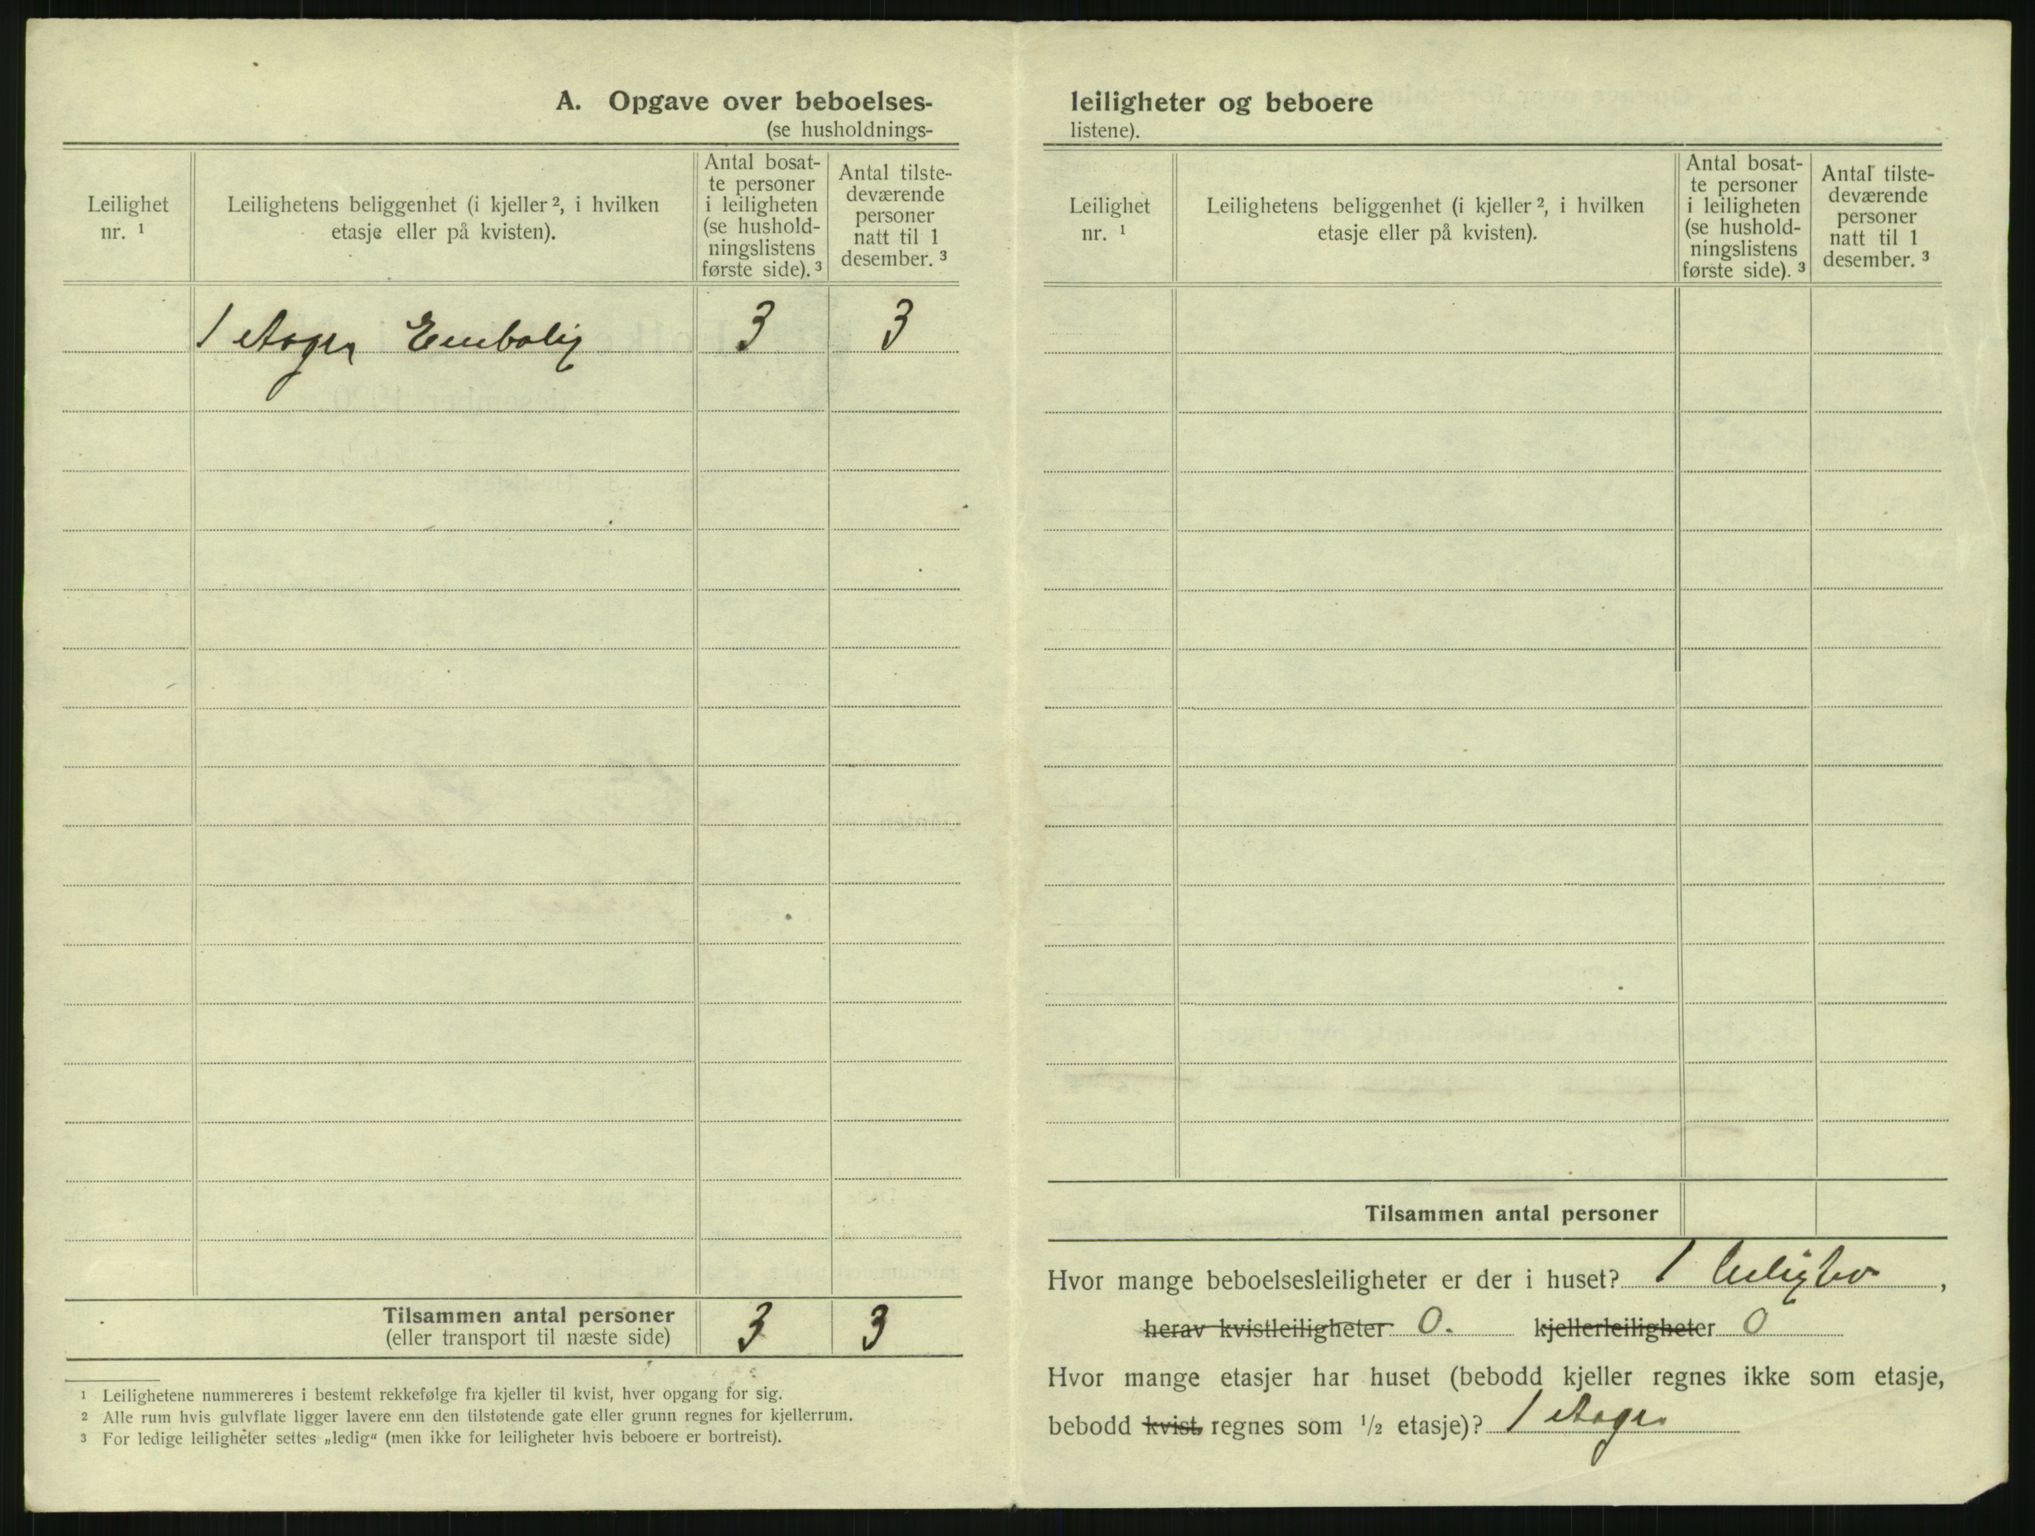 A. Opgave over beboelses-
(se husholdnings-
Leilighet
nr. ¹
Leilighetens beliggenhet (i kjeller ², i hvilken
etasje eller på kvisten).
Antal bosat-
te personer
i leiligheten
(se hushold-
ningslistens
første side). ³
Antal tilste-
deværende
personer
natt til 1
desember. ³
1 Enebolig 3 3
Tilsammen antal personer
(eller transport til næste side)
3 3
¹ Leilighetene nummereres i bestemt rekkefølge fra kjeller til kvist, hver opgang for sig.
² Alle rum hvis gulvflate ligger lavere enn den tilstøtende gate eller grunn regnes for kjellerrum.
³ For ledige leiligheter settes „ledig“ (men ikke for leiligheter hvis beboere er bortreist).
leiligheter og beboere
listene).
Leilighet
nr. ¹
Leilighetens beliggenhet (i kjeller ², i hvilken
etasje eller på kvisten).
Antal bosat-
te personer
i leiligheten
(se hushold-
ningslistens
første side). ³
Antal tilste-
deværende
personer
natt til 1
desember. ³
Tilsammen antal personer
Hvor mange beboelsesleiligheter er der i huset? 1 ,
herav kvistleiligheter 0. kjellerleiligheter 0
Hvor mange etasjer har huset (bebodd kjeller regnes ikke som etasje,
bebodd kvist, regnes som ½ etasje)? 1